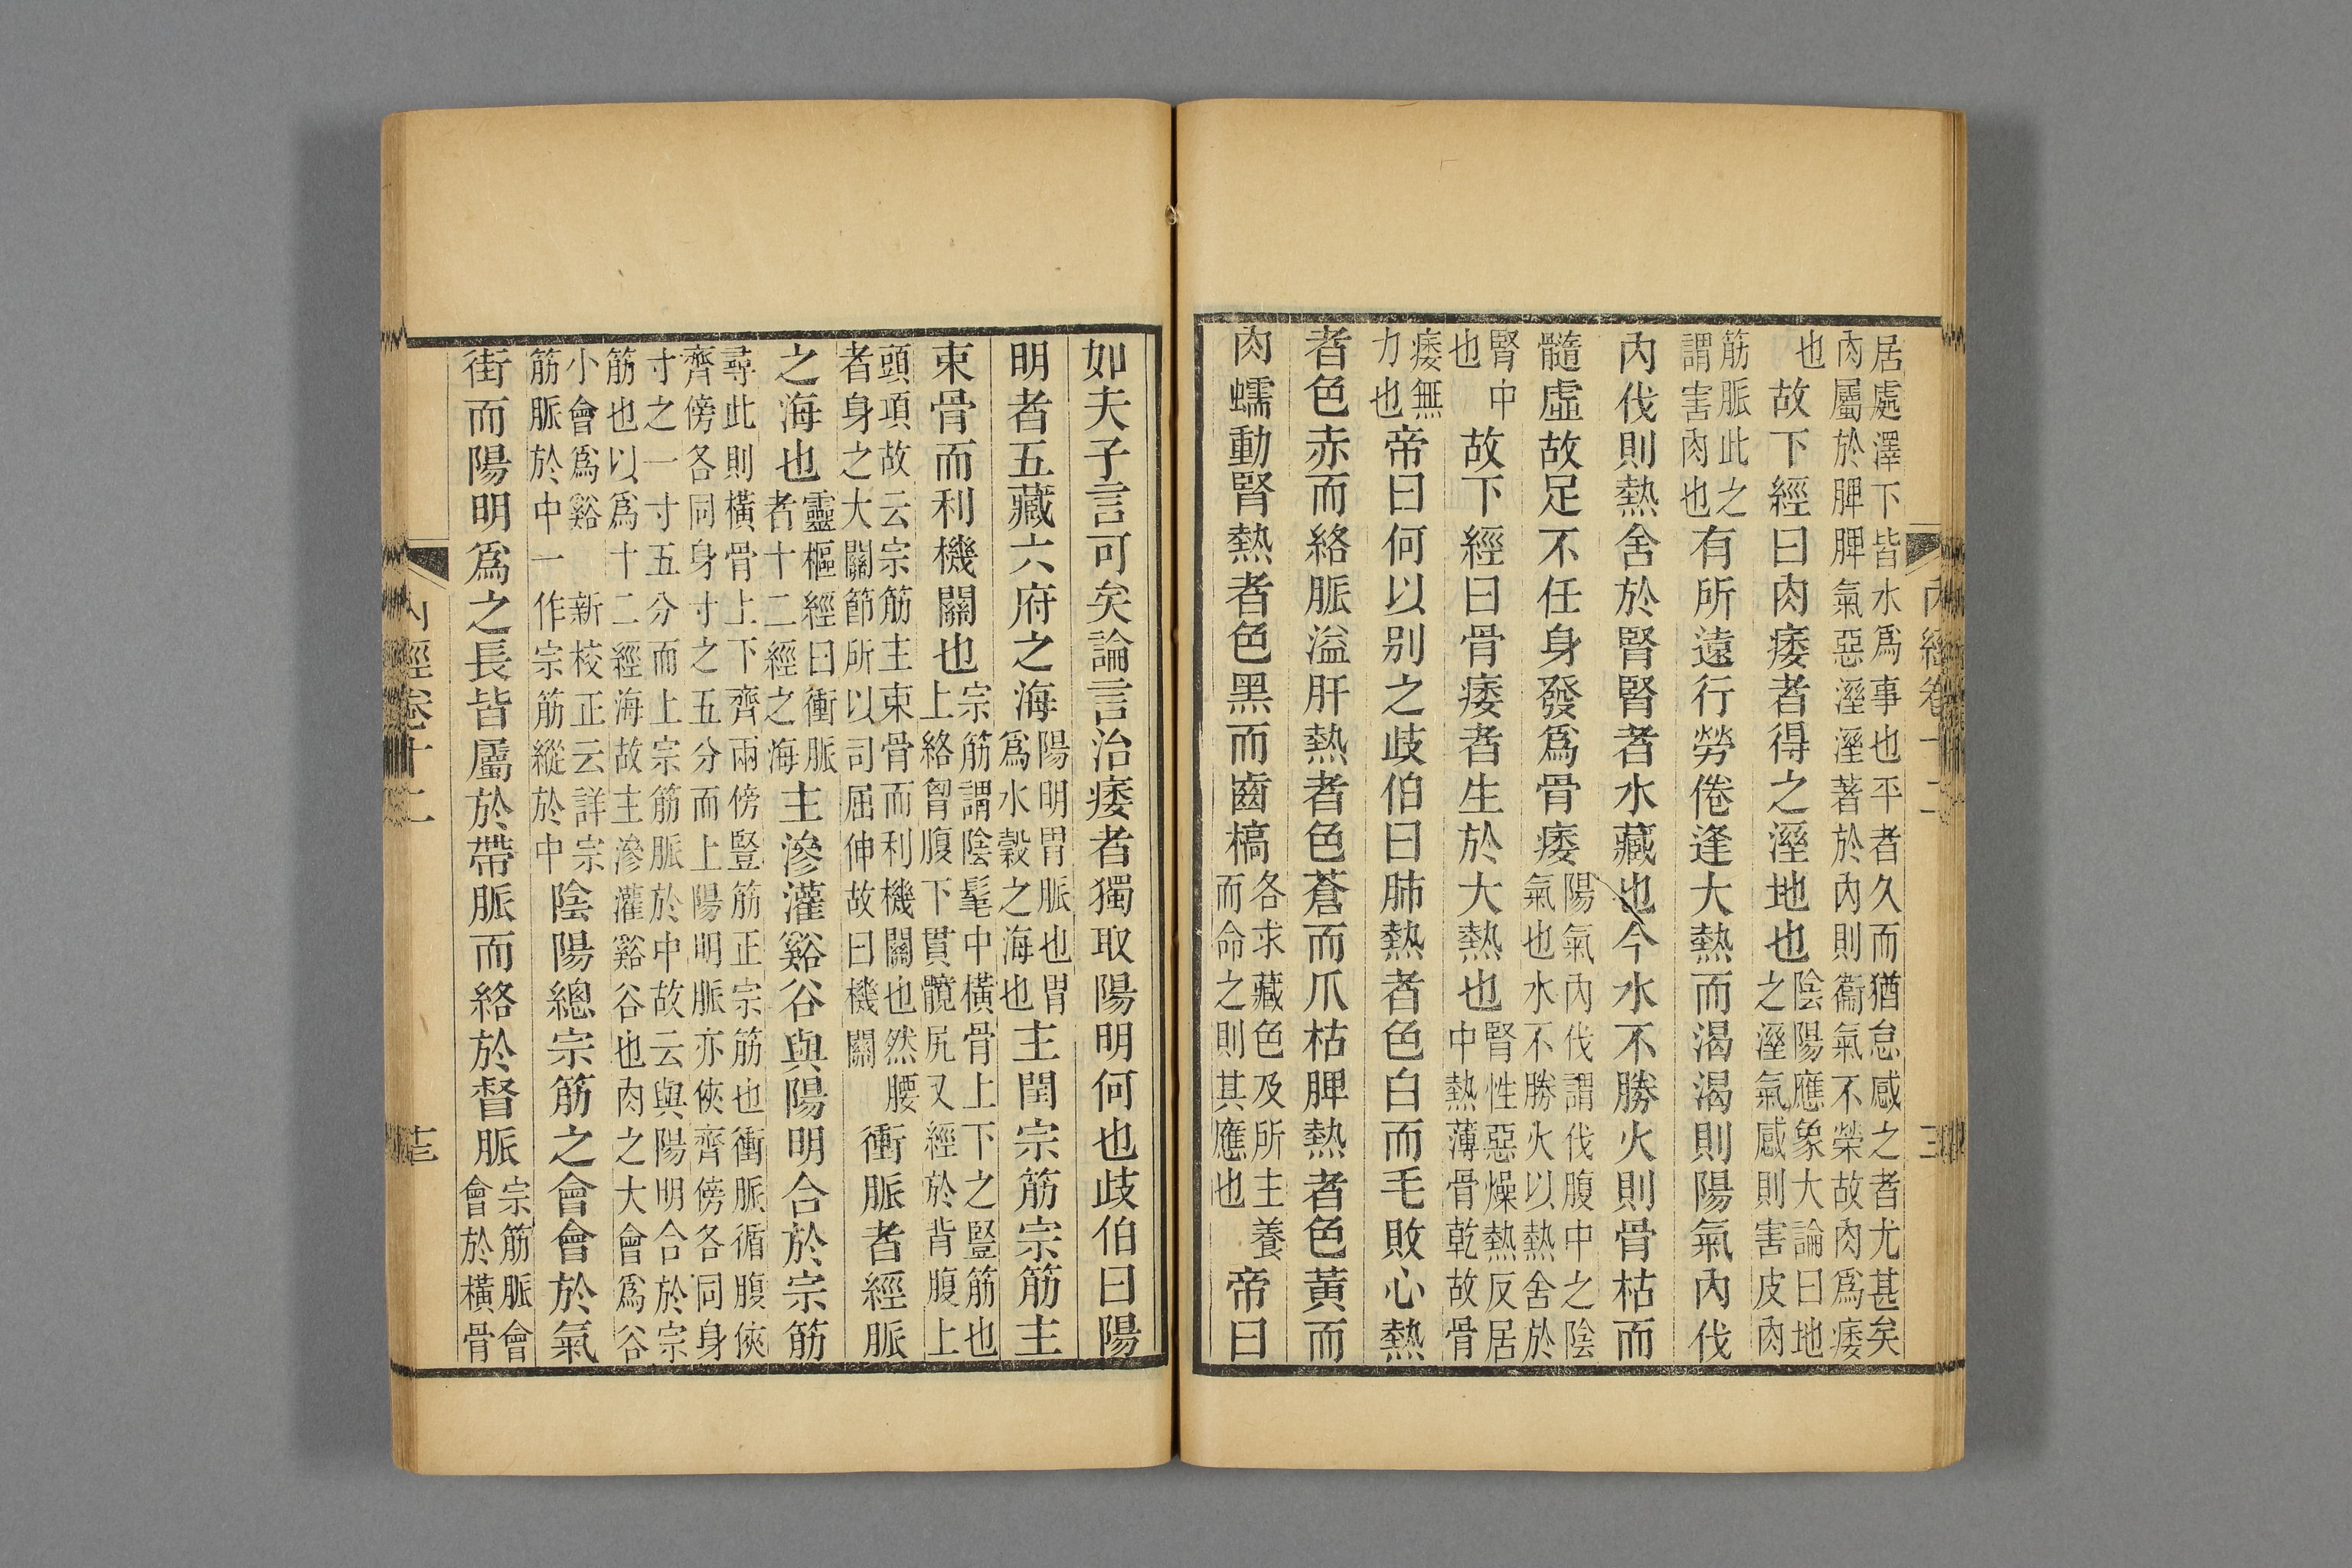 內經卷十二
居處澤下皆水爲事也平者久而猶怠感之者尤甚矣
肉屬於脾脾氣惡溼溼著於內則衞氣不榮故肉爲痿
也故下經曰肉痿者得之溼地也陰陽應象大論曰地之溼氣感則害皮肉
筋脈此之謂害肉也有所遠行勞倦逢大熱而渴渴則陽氣內伐
內伐則熱舍於腎腎者水藏也今水不勝火則骨枯而
髓虛故足不任身發爲骨痿陽氣內伐謂伐腹中之陰氣也水不勝火以熱舍於
腎中也故下經曰骨痿者生於大熱也腎性惡燥熱反居中熱薄骨乾故骨
痿無力也帝曰何以別之歧伯曰肺熱者色白而毛敗心熱
者色赤而絡脈溢肝熱者色蒼而爪枯脾熱者色黃而
肉蠕動腎熱者色黑而齒槁各求藏色及所主養而命之則其應也帝曰
如夫子言可矣論言治痿者獨取陽明何也歧伯曰陽
明者五藏六府之海陽明胃脈也胃爲水穀之海也主閏宗筋宗筋主
束骨而利機關也宗筋謂陰髦中橫骨上下之豎筋也上絡胷腹下貫髖尻又經於背腹上
頭項故云宗筋主束骨而利機關也然腰者身之大關節所以司屈伸故曰機關衝脈者經脈
之海也靈樞經曰衝脈者十二經之海主滲灌谿谷與陽明合於宗筋
尋此則橫骨上下齊兩傍豎筋正宗筋也衝脈循腹俠
齊傍各同身寸之五分而上陽明脈亦俠齊傍各同身
寸之一寸五分而上宗筋脈於中故云與陽明合於宗
筋也以爲十二經海故主滲灌谿谷也肉之大會爲谷
小會爲谿新校正云詳宗筋脈於中一作宗筋縱於中陰陽總宗筋之會會於氣
街而陽明爲之長皆屬於帶脈而絡於督脈宗筋脈會會於橫骨
內經卷十二